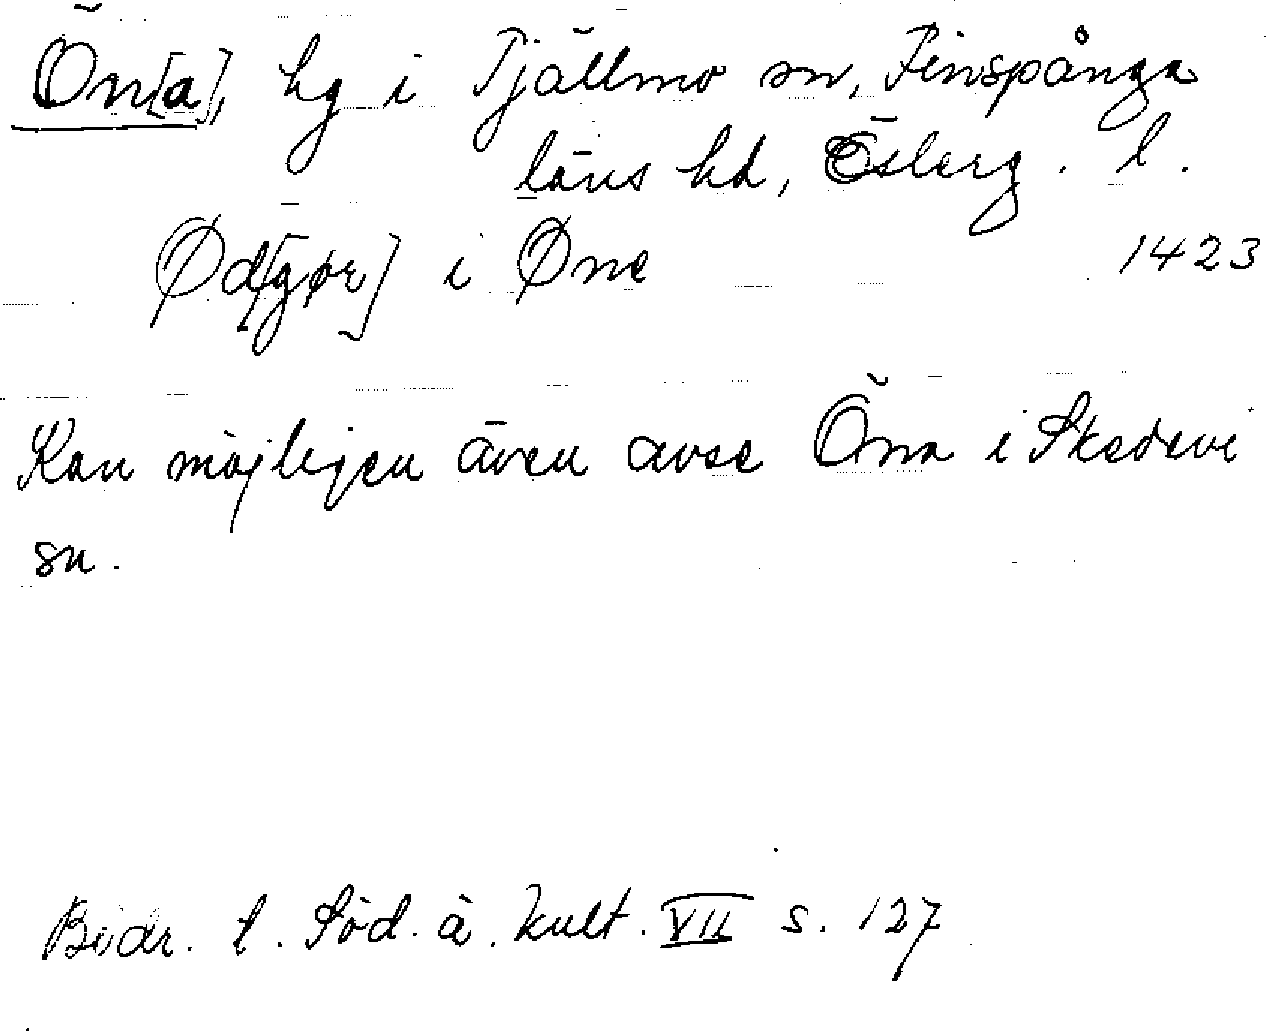 Ön[a], hg i Tjällmo sn, Finspånga
läns hd, Österg. l.
Ød[gør] i Øne 1423
Kan möjligen även avse Öna i Skedevi
sn.
Bidr. t. Söd. ä. kult. VII s. 127